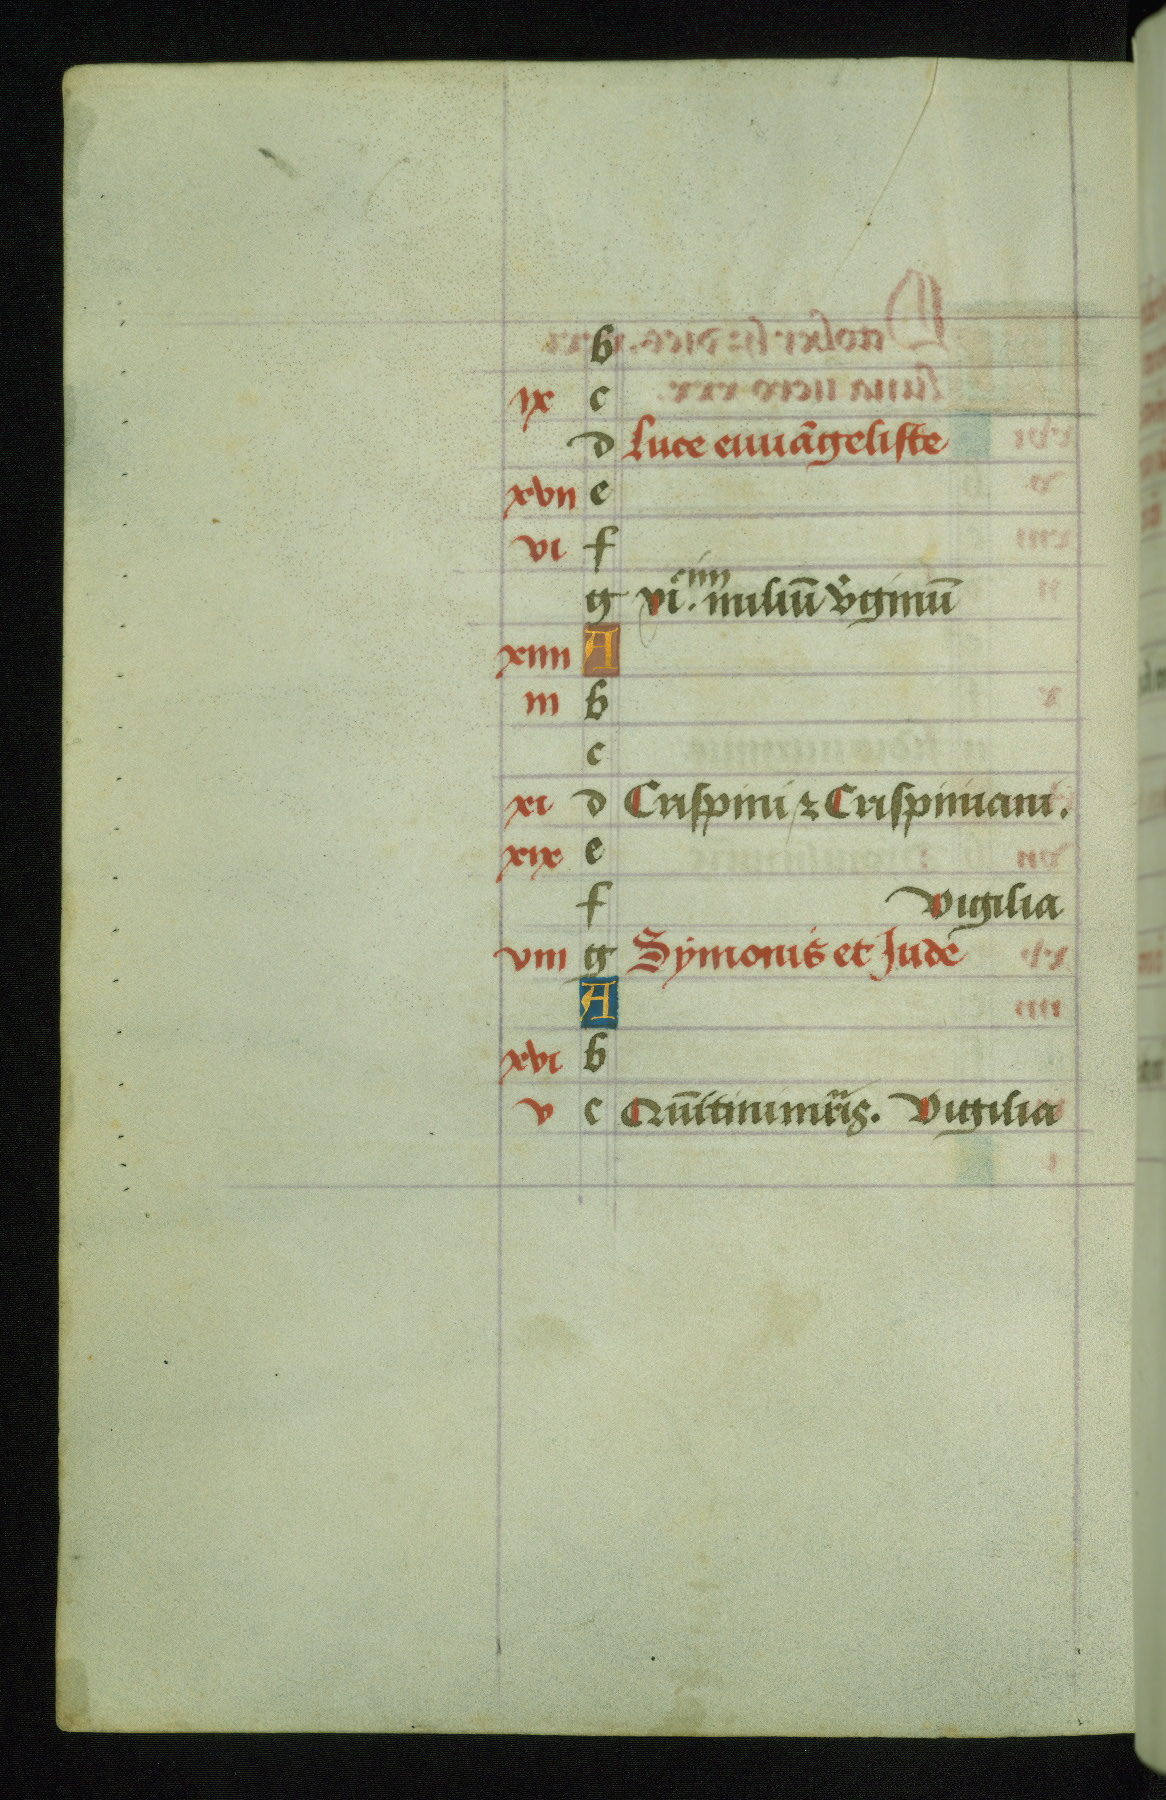 b
ix c
d Luce euuāgeliste
xvii e
vi f
g xi. miliū v̓ginū
xiiii A
iii b
c
xi d Crispini ⁊ Crispiniani.
xix e
f Vigilia
viii g Symonis et Jude
A
xvi b
v c Vigilia